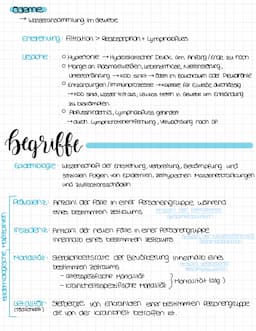 Ödeme
→ Wasseransammlung im Gewebe
Entstehung: Filtration > Reabsorption + Lymphabfluss
Ursache: ○ Hypertonie → Hydrostatischer Druck am Anfang/Ende zu hoch
○ Mangel an Plasmaeiweißen, Leberzirrhose, Niereninsuff.,
Unterernährung → KOD sinkt → Ödem im Bauchraum oder Pleurahöhle
○ Entzündungen / Immunprozesse → Gefäße für Eiweiße durchlässig
→ KOD sinkt, Wasser tritt aus, Leukos treten in Gewebe um Entzündung
zu bekämpfen
○ Abflusshindernis, Lymphabfluss gehindert
→ durch Lymphknotenentfernung, Verwachsung nach OP
Begriffe
Epidemiologie: Wissenschaft der Entstehung, Verbreitung, Bekämpfung und
sozialen Folgen von Epidemien, zeittypischen Massenerkrankungen
und Zivilisationsschäden
epidemiologische Maßzahlen
Prävalenz: Anzahl der Fälle in einer Personengruppe, während
eines bestimmten Zeitraums
Inzidenz: Anzahl der neuen Fälle in einer Personengruppe
innerhalb eines bestimmten Zeitraums
Mortalität: Sterblichkeitsrate der Bevölkerung innerhalb eines
bestimmten Zeitraums
- altersspezifische Mortalität
- krankheitsspezifische Mortalität
Letalität: Sterberate von Erkrankten einer bestimmten Personengruppe
die von der Krankheit betroffen ist.